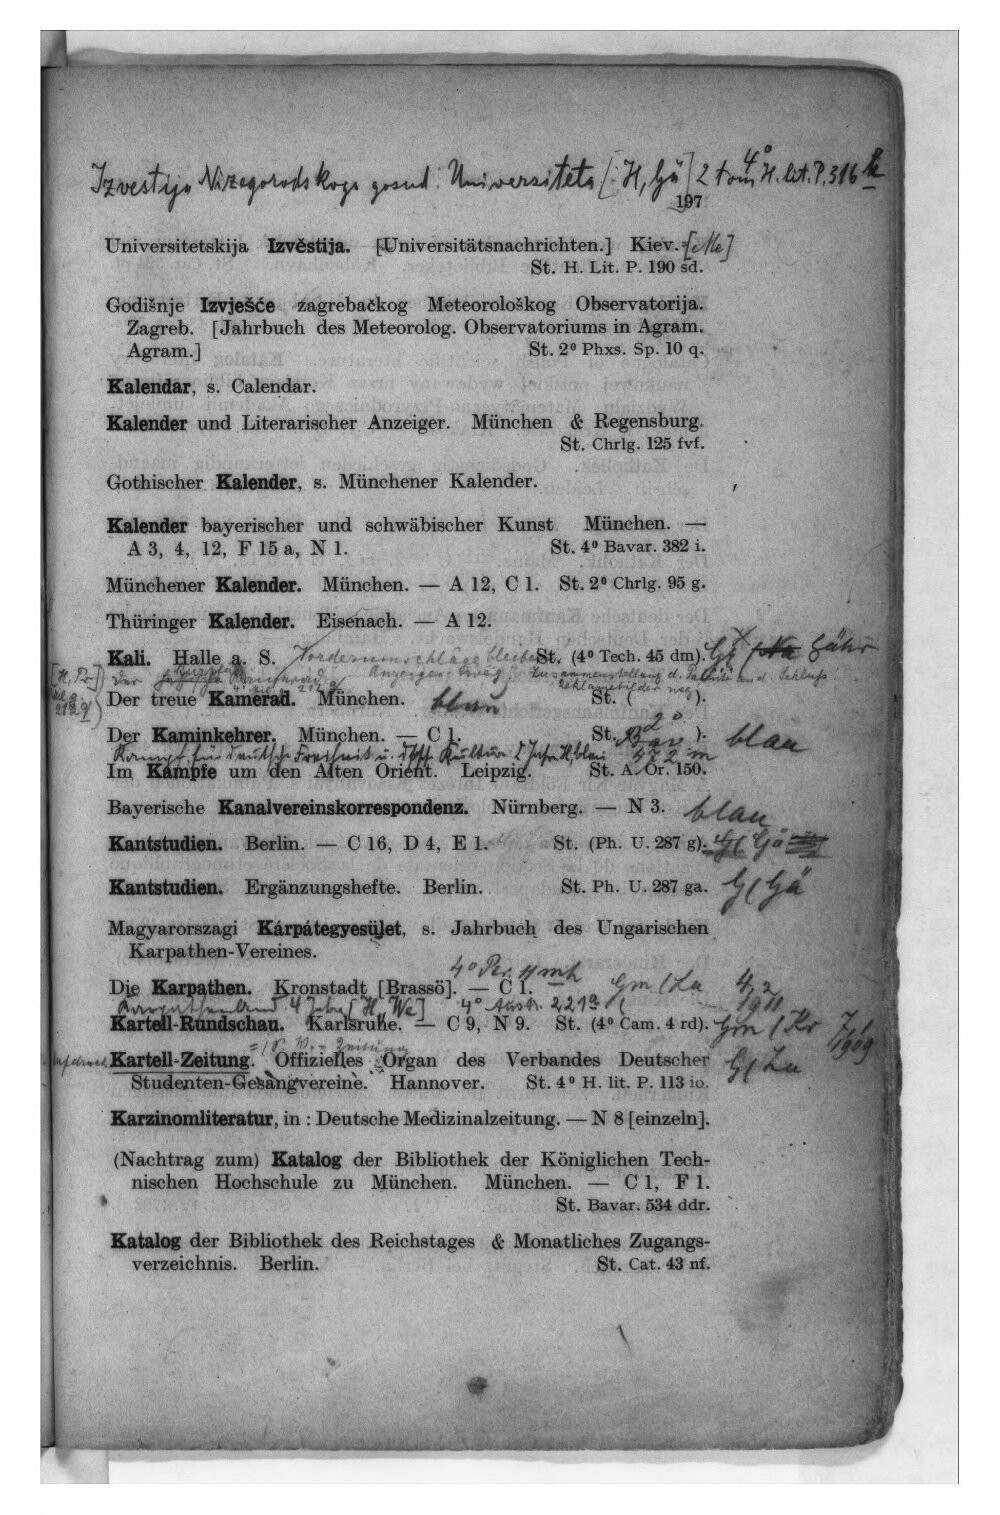 Izvestija Nizegorodskogo gosud. Universiteta [H, Gö] 2 tom 4° H. lit. P. 316 k
197
Universitetskija Izvěstija. [Universitätsnachrichten.] Kiev.
St. H. Lit. P. 190 sd.
Godišnje Izvješće zagrebačkog Meteorološkog Observatorija.
Zagreb. [Jahrbuch des Meteorolog. Observatoriums in Agram.
Agram.] St. 2⁰ Phxs. Sp. 10 q.
Kalendar, s. Calendar.
Kalender und Literarischer Anzeiger. München & Regensburg.
St. Chrlg. 125 fvf.
Gothischer Kalender, s. Münchener Kalender.
Kalender bayerischer und schwäbischer Kunst München. —
A 3, 4, 12, F 15 a, N 1. St. 4⁰ Bavar. 382 i.
Münchener Kalender. München. — A 12, C 1. St. 2⁰ Chrlg. 95 g.
Thüringer Kalender. Eisenach. — A 12.
Kali. Halle a. S. Vorderumschläge bleiben St. (4⁰ Tech. 45 dm). Gähr
[H, Pr] der
Der treue Kamerad. München. blau St. ( ).
Der Kaminkehrer. München. — C 1. St. 2° Bav ). blau
Kampf für deutsche Freiheit u. Kultur blau 422 m
Im Kampfe um den Alten Orient. Leipzig. St. A. Or. 150.
Bayerische Kanalvereinskorrespondenz. Nürnberg. — N 3. blau
Kantstudien. Berlin. — C 16, D 4, E 1. St. (Ph. U. 287 g). G( Gä
Kantstudien. Ergänzungshefte. Berlin. St. Ph. U. 287 ga. G( Gä
Magyarorszagi Kárpátegyesület, s. Jahrbuch des Ungarischen
Karpathen-Vereines.
4° Per. 11 mh
Die Karpathen. Kronstadt [Brassó]. — C 1. Gm ( La 4,2 1911
Karpathenland 4 Jahre [H, We] 4° Austr. 221 a
Kartell-Rundschau. Karlsruhe. — C 9, N 9. St. (4⁰ Cam. 4 rd). Gm ( Kr 7,1 1909
Kartell-Zeitung. Offizielles Organ des Verbandes Deutscher G( La
Studenten-Gesangvereine. Hannover. St. 4⁰ H. lit. P. 113 io.
Karzinomliteratur, in : Deutsche Medizinalzeitung. — N 8 [einzeln].
(Nachtrag zum) Katalog der Bibliothek der Königlichen Tech-
nischen Hochschule zu München. München. — C 1, F 1.
St. Bavar. 534 ddr.
Katalog der Bibliothek des Reichstages & Monatliches Zugangs-
verzeichnis. Berlin. St. Cat. 43 nf.